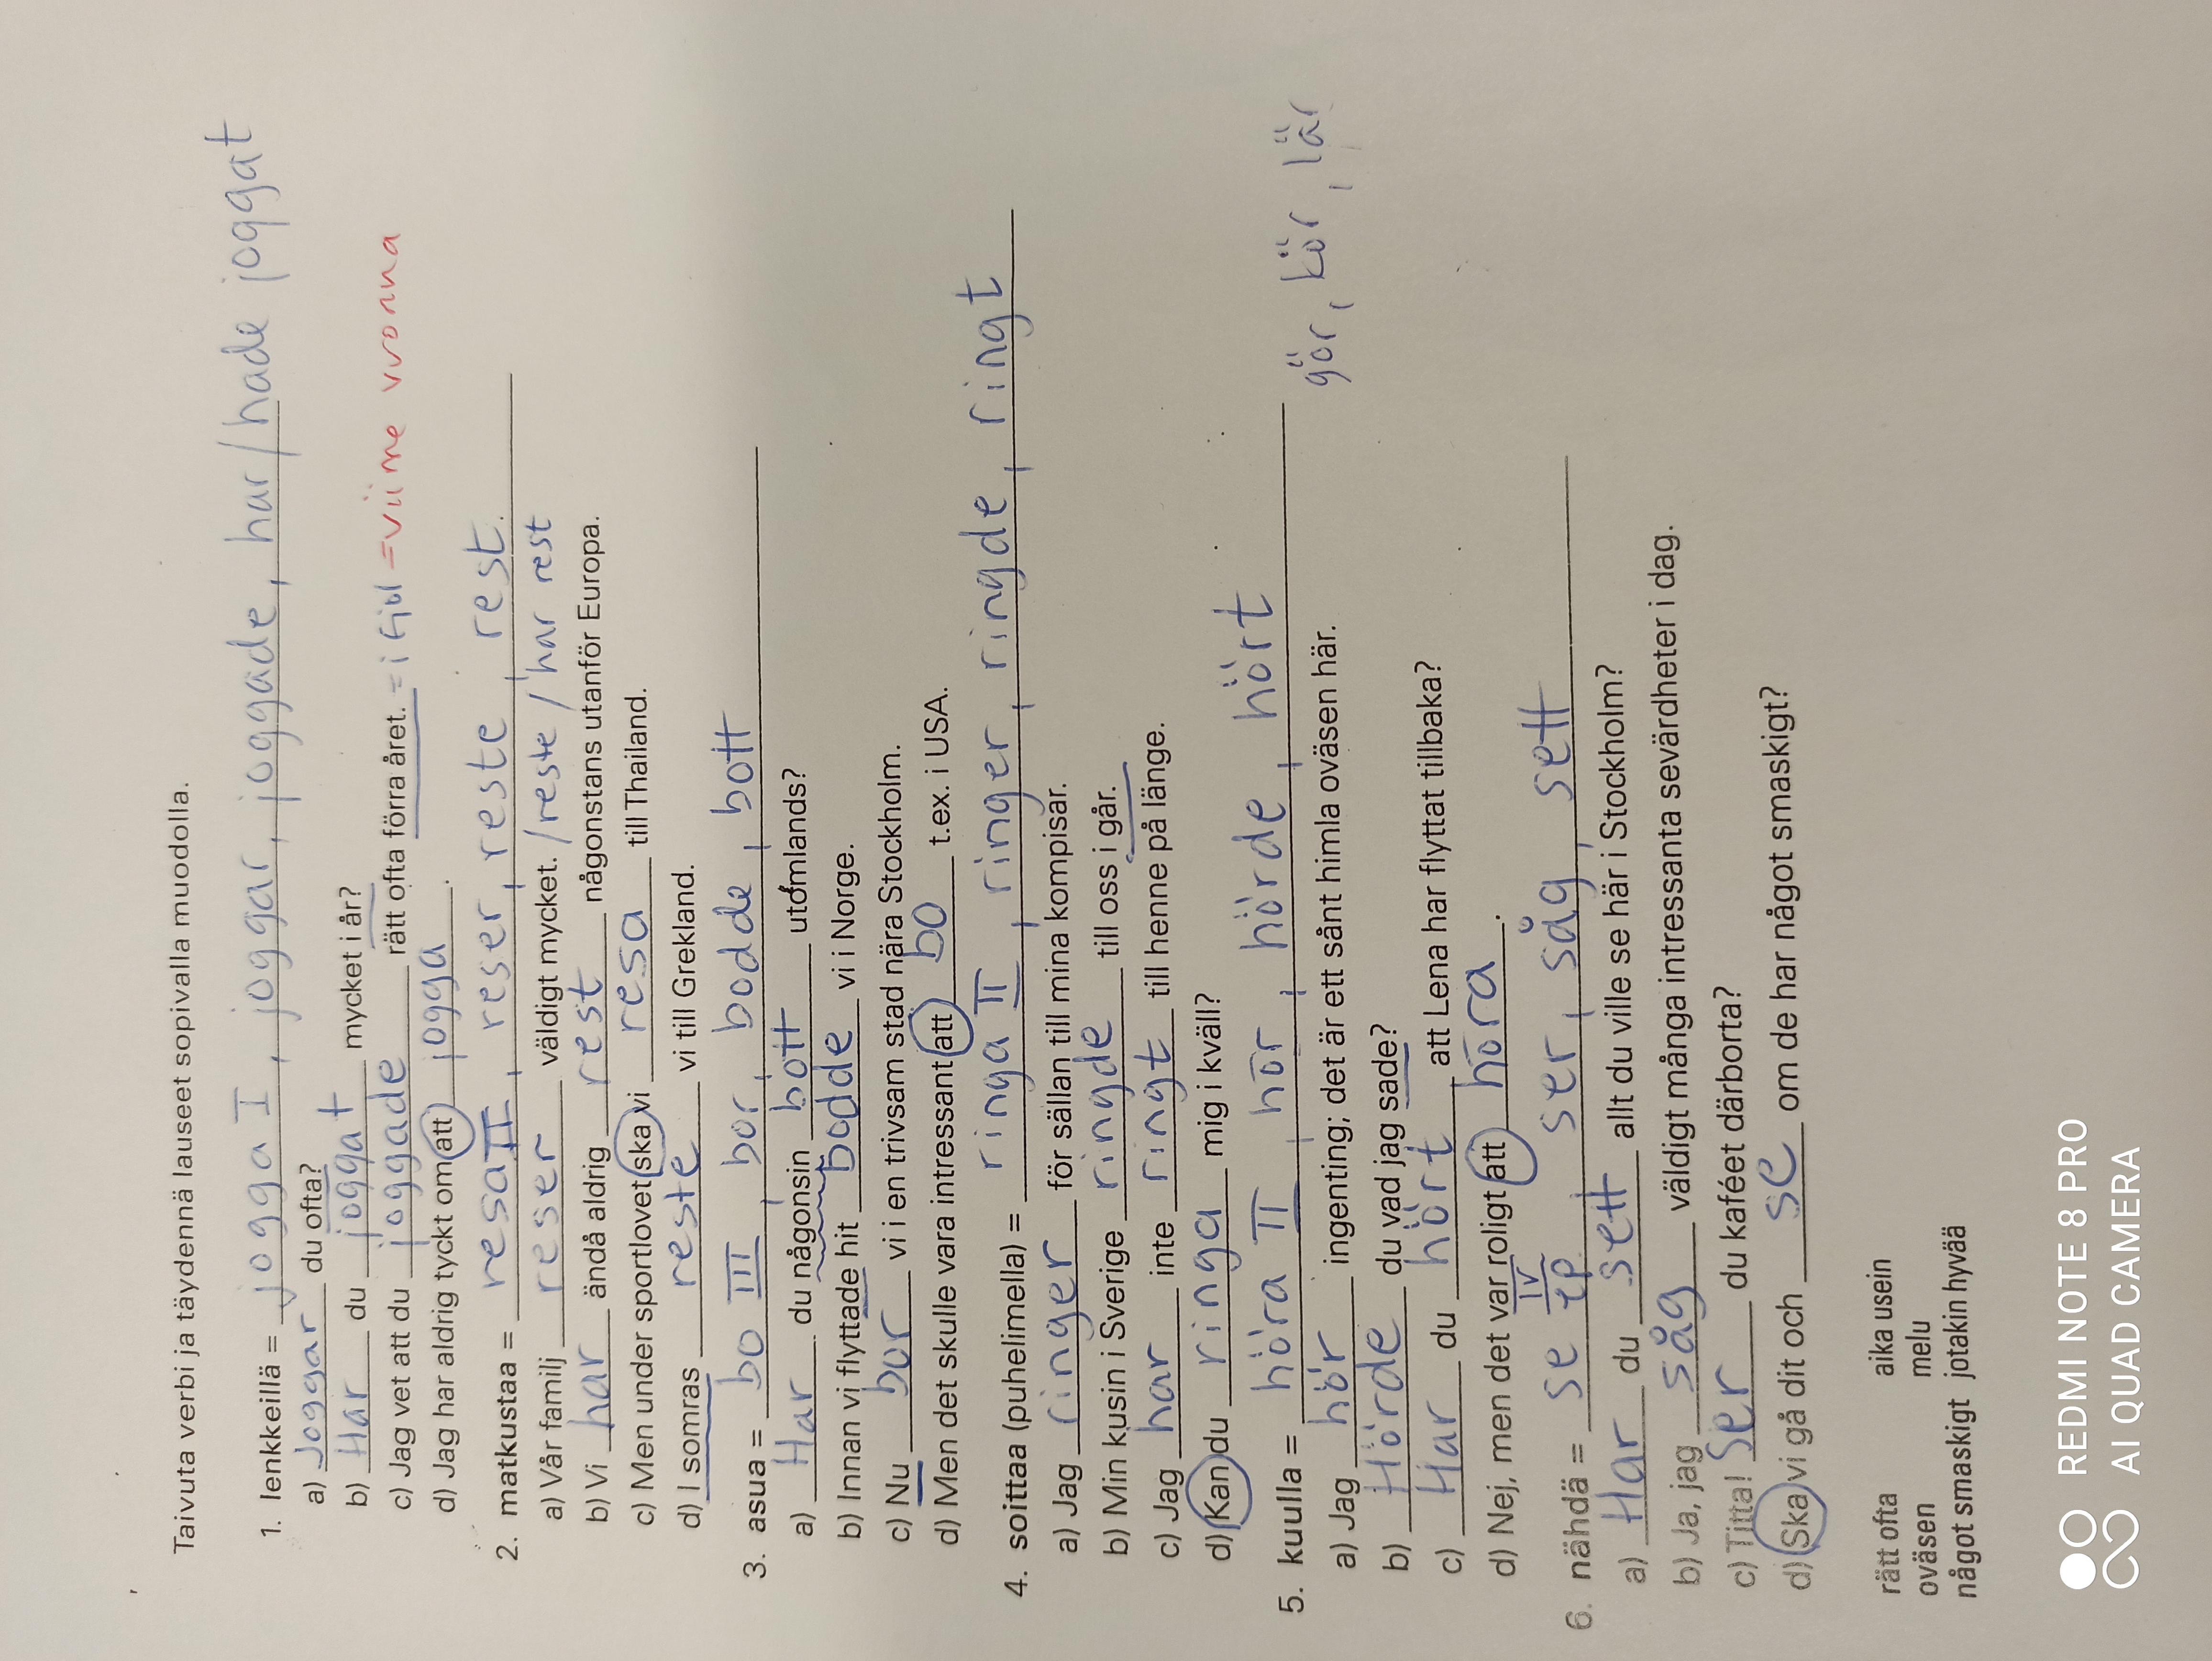 Taivuta verbi ja täydennä lauseet sopivalla muodolla.
1. lenkkeillä = jogga I, joggar, joggade, har/hade joggat
a) Joggar du ofta?
b) Har du joggat mycket i år?
c) Jag vet att du joggade rätt ofta förra året. = i fjol = viime vuonna
d) Jag har aldrig tyckt om att jogga.
2. matkustaa = resa II, reser, reste, rest
a) Vår familj reser väldigt mycket. /reste /har rest
b) Vi har ändå aldrig rest någonstans utanför Europa.
c) Men under sportlovet ska vi resa till Thailand.
d) I somras reste vi till Grekland.
3. asua = bo III, bor, bodde, bott
a) Har du någonsin bott utomlands?
b) Innan vi flyttade hit bodde vi i Norge.
c) Nu bor vi i en trivsam stad nära Stockholm.
d) Men det skulle vara intressant att bo t.ex. i USA.
4. soittaa (puhelimella) = ringa II, ringer, ringde, ringt
a) Jag ringer för sällan till mina kompisar.
b) Min kusin i Sverige ringde till oss i går.
c) Jag har inte ringt till henne på länge.
d) Kan du ringa mig i kväll?
5. kuulla = höra II, hör, hörde, hört
gör, kör, lär
a) Jag hör ingenting; det är ett sånt himla oväsen här.
b) Hörde du vad jag sade?
c) Har du hört att Lena har flyttat tillbaka?
d) Nej, men det var roligt att höra.
6. nähdä = se IV ep ser, såg, sett
a) Har du sett allt du ville se här i Stockholm?
b) Ja, jag såg väldigt många intressanta sevärdheter i dag.
c) Titta! Ser du kaféet därborta?
d) Ska vi gå dit och se om de har något smaskigt?
rätt ofta aika usein
oväsen melu
något smaskigt jotakin hyvää
REDMI NOTE 8 PRO
AI QUAD CAMERA